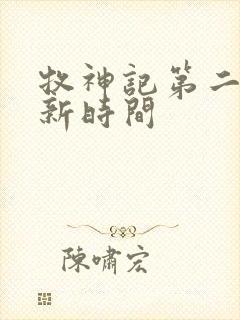 牧神記第二
新時間
陳嘯宏